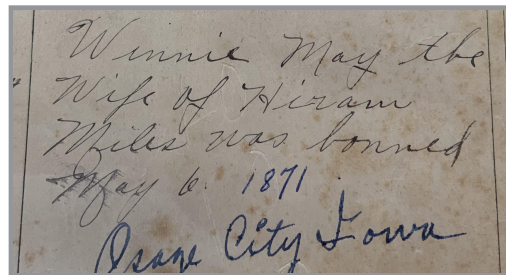 Winnie May the
Wife of Hiram
Miles was bonned
May 6. 1871.
Osage City Iowa